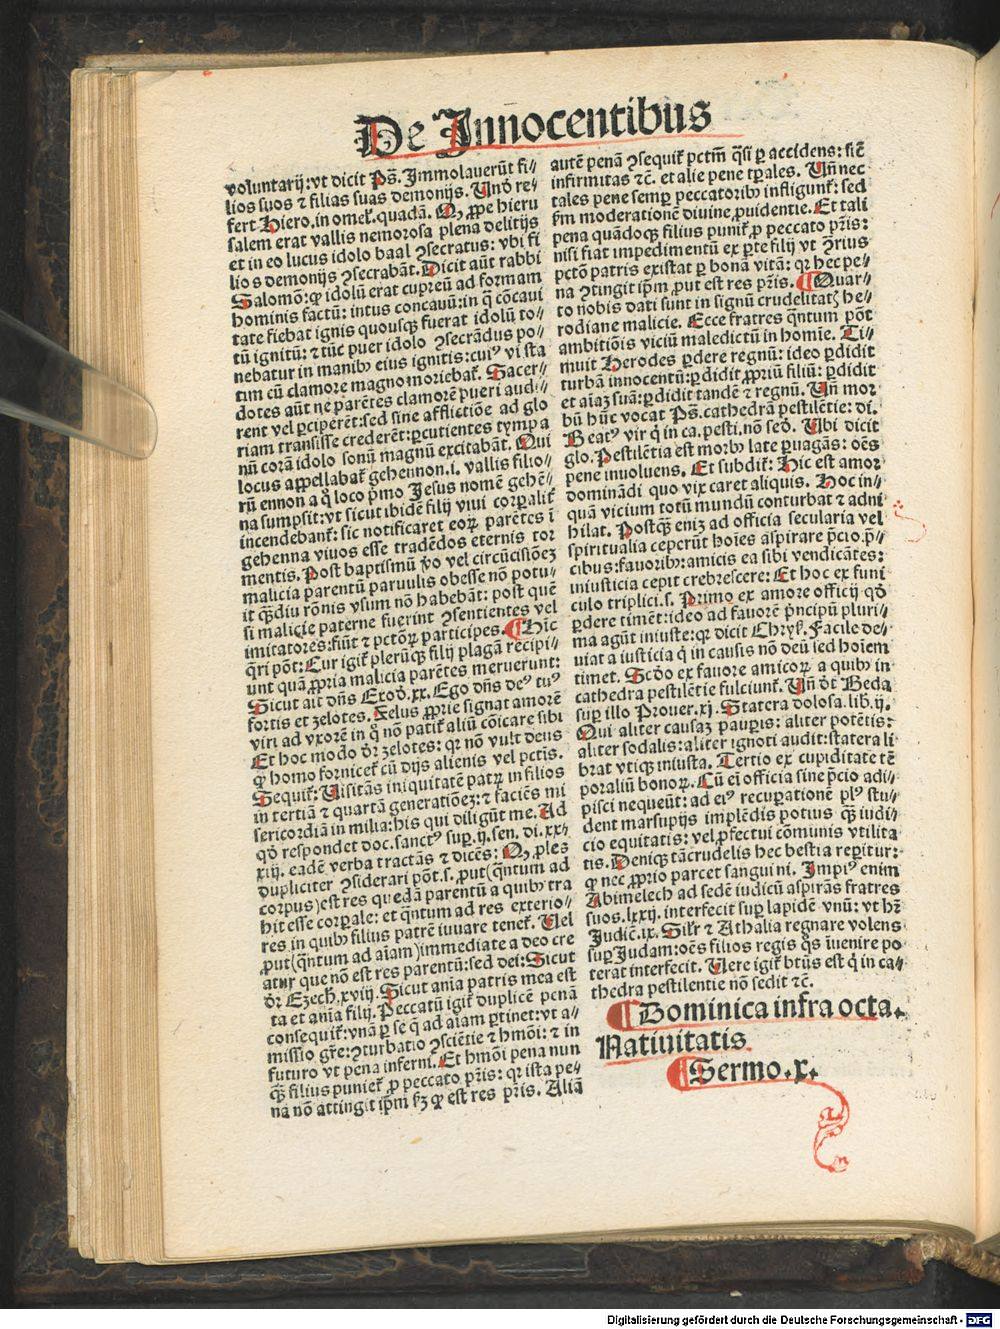 De Innocentibus
voluntarij: vt dicit Ps̃. Jmmolauerũt fi⸗
lios suos ⁊ filias suas demonijs. Unð re⸗
fert Hiero. in omeł. quadã. Q, ꝓpe hieru
salem erat vallis nemorosa plena delitijs
et in eo lucus idolo baal ꝯsecratus: vbi fi
lios demonijs ꝯsecrabãt. Dicit aũt rabbi
Salomõ: ꝙ idolũ erat cupreũ ad formam
hominis factũ: intus concauũ: in q̃ cõcaui
tate fiebat ignis quousqꝫ fuerat idolũ to⸗
tũ ignitũ: ⁊ tũc puer idolo ꝯsecrãdus po⸗
nebatur in manibꝰ eius ignitis: cuiꝰ vi sta
tim cũ clamore magno moriebat᷑. Sacer⸗
dotes aũt ne parẽtes clamorẽ pueri audi⸗
rent vel ꝑciperẽt: sed sine afflictiõe ad glo
riam transisse crederẽt: ꝑcutientes tympa
nũ corã idolo sonũ magnũ excitabãt. Qui
locus appellabat᷑ gehennon .i. vallis filio⸗
rũ ennon a q̊ loco pͥmo Jesus nomẽ gehẽ⸗
na sumpsit: vt sicut ibidẽ filij viui corꝑalit᷑
incendebant᷑: sic notificaret eoꝝ parẽtes ĩ
gehenna viuos esse tradẽdos eternis tor
mentis. Post baptismũ ꝟo vel circũcisiõeꝫ
malicia parentũ paruulis obesse nõ potu⸗
it qͣꝫdiu rõnis vsum nõ habebãt: post quẽ
si malicie paterne fuerint ꝯsentientes vel
imitatores: fiũt ⁊ pctõꝝ participes. ¶ Hic
q̃ri põt: Cur igit᷑ plerũqꝫ filij plagã recipi⸗
unt quã ꝓpria malicia parẽtes meruerunt:
Sicut ait dñs Exoð. xx. Ego dñs deꝰ tuꝰ
fortis et zelotes. Zelus ꝓprie signat amorẽ
viri ad vxorẽ in q̊ nõ patit᷑ aliũ cõicare sibi
Et hoc modo ðr zelotes: qꝛ nõ vult deus
ꝙ homo fornicet᷑ cũ dijs alienis vel pctĩs.
Sequit᷑: Uisitãs iniquitatẽ patꝝ in filios
in tertiã ⁊ quartã generatiõeꝫ: ⁊ faciẽs mi
sericordiã in milia: his qui diligũt me. Ad
qð respondet doc. sanctꝰ suꝑ .ij. sen. di. xx⸗
xiij. eadẽ verba tractãs ⁊ dicẽs: Q, ꝓles
dupliciter ꝯsiderari põt .s. ꝓut (qͣntum ad
corpus) est res quedã parentũ a quibꝰ tra
hit esse corꝑale: et qͣntum ad res exterio⸗
res in quibꝰ filius patrẽ iuuare tenet᷑. Uel
ꝓut (qͣntum ad aĩam) immediate a deo cre
atur que nõ est res parentũ: sed dei: Sicut
ðr Ezech. xviij. Sicut anĩa patris mea est
ita et anĩa filij. Peccatũ igit᷑ duplicẽ penã
consequit᷑: vnã ꝑ se q̃ ad aĩam ꝑtinet: vt a⸗
missio gr̃e: ꝯturbatio ꝯsciẽtie ⁊ hmõi: ⁊ in
futuro vt pena inferni. Et hmõi pena nun
qͣꝫ filius puniet᷑ ꝓ peccato pr̃is: qꝛ ista pe⸗
na nõ attingit ip̃m ẜꝫ ꝙ est res pr̃is. Aliã
autẽ penã ꝯsequit᷑ pctm̃ q̃si ꝑ accidens: sic̃
infirmitas ⁊c̃. et alie pene tꝑales. Uñ nec
tales pene semꝑ peccatoribꝰ infligunt᷑: sed
ẜm moderationẽ diuine ꝓuidentie. Et tali
pena quãdoqꝫ filius punit᷑ ꝓ peccato pr̃is:
nisi fiat impedimentũ ex ꝑte filij vt ꝯ̃rius
pctõ patris existat ꝑ bonã vitã: qꝛ hec pe⸗
na ꝯtingit ip̃m ꝓut est res pr̃is. ¶ Quar⸗
to nobis dati sunt in signũ crudelitatꝭ he⸗
rodiane malicie. Ecce fratres qͣntum põt
ambitiõis viciũ maledictũ in homĩe. Ti⸗
muit Herodes ꝑdere regnũ: ideo ꝑdidit
turbã innocentũ: ꝑdidit ꝓpriũ filiũ: ꝑdidit
et aĩaꝫ suã: ꝑdidit tandẽ ⁊ regnũ. Uñ mor
bũ hũc vocat Ps̃. cathedrã pestilẽtie: di.
Beatꝰ vir q̇ in ca. pesti. nõ seð. Ubi dicit
glo. Pestilẽtia est morbꝰ late ꝑuagãs: oẽs
pene inuoluens. Et subdit᷑: Hic est amor
dominãdi quo vix caret aliquis. Hoc in⸗
quã vicium totũ mundũ conturbat ⁊ adni
hilat. Postqͣꝫ enĩꝫ ad officia secularia vel
spiritualia ceperũt hoĩes aspirare p̃cio. p̃⸗
cibus: fauoribꝰ: amicis ea sibi vendicãtes:
iniusticia cepit crebrescere: Et hoc ex funi
culo triplici .s. Primo ex amore officij qð
ꝑdere timẽt: ideo ad fauorẽ pͥncipũ pluri⸗
ma agũt iniuste: qꝛ dicit Chryß. Facile de⸗
uiat a iusticia q̇ in causis nõ deũ sed hoĩem
timet. Scðo ex fauore amicoꝝ a quibꝰ in
cathedra pestilẽtie fulciunt᷑. Uñ ðt Beda
suꝑ illo Prouer. xj. Statera dolosa. lib. ij.
Qui aliter causaꝫ pauꝑis: aliter potẽtis:
aliter sodalis: aliter ignoti audit: statera li
brat vtiqꝫ iniusta. Tertio ex cupiditate tẽ
poraliũ bonoꝝ. Cũ eĩ officia sine p̃cio adi⸗
pisci nequeũt: ad eiꝰ recuꝑationẽ plꝰ stu⸗
dent marsupijs implẽdis potius qͣꝫ iudi⸗
cio equitatis: vel ꝓfectui cõmunis vtilita
tis. Deniqꝫ tã crudelis hec bestia reꝑitur:
ꝙ nec ꝓprio parcet sanguini. Jmpiꝰ enim
Abimelech ad sedẽ iudicũ aspirãs fratres
suos .lxxij. interfecit suꝑ lapidẽ vnũ: vt hr̃
Judic̃. ix. Silr̃ ⁊ Athalia regnare volens
suꝑ Judam: oẽs filios regis q̊s ĩuenire po
terat interfecit. Uere igit᷑ bt̃us est q̇ in ca⸗
thedra pestilentie nõ sedit ⁊c̃.
¶ Dominica infra octa.
Natiuitatis
¶ Sermo .x.
Digitalisierung gefördert durch die Deutsche Forschungsgemeinschaft - DFG